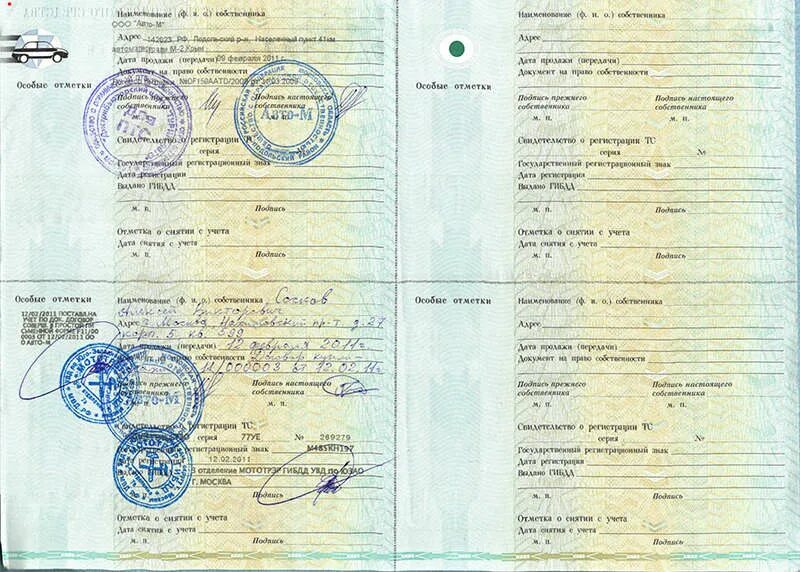 Особые отметки
Наименование (ф. и. о.) собственника
ООО "Авто-М"
Адрес 142023, РФ, Подольский р-н, Населенный пункт 41км
автомагистрали М-2 Крым
Дата продажи (передачи) 09 февраля 2011 г.
Документ на право собственности
Подпись прежнего собственника
Подпись настоящего собственника
АВТО-М
Свидетельство о регистрации
серия
Государственный регистрационный знак
Дата регистрации
Выдано ГИБДД
м. п. Подпись
Отметка о снятии с учета
Дата снятия с учета
м. п. Подпись
Наименование (ф. и. о.) собственника
Адрес
Дата продажи (передачи)
Документ на право собственности
Особые отметки
Подпись прежнего собственника
м. п.
Подпись настоящего собственника
м. п.
Свидетельство о регистрации ТС
серия №
Государственный регистрационный знак
Дата регистрации
Выдано ГИБДД
м. п. Подпись
Отметка о снятии с учета
Дата снятия с учета
м. п. Подпись
Особые отметки
12/02/2011 ПОСТАВЛ.НА
УЧЕТ ПО ДОК. ДОГОВОР
СОВЕРШ. В ПРОСТОЙ ПИ
СЬМЕННОЙ ФОРМЕ
0003 ОТ 12/02/2011 ОО
О АВТО-М
Наименование (ф. и. о.) собственника
Алексей Викторович
Адрес г. Москва пр-т д. 27
корп. 5 кв. 399
Дата продажи (передачи) 12 февраля 2011г.
Документ на право собственности Договор купли-
11/000003 от 12.02.11г
Подпись прежнего собственника
Подпись настоящего собственника
м. п.
АВТО-М
Свидетельство о регистрации ТС
серия 77УЕ № 269279
Государственный регистрационный знак
Дата регистрации 12.02.2011
отделение МОТОТРЭР ГИБДД УВД по ЮЗАО
Г. МОСКВА
Подпись
Отметка о снятии с учета
Дата снятия с учета
м. п. Подпись
Особые отметки
Наименование (ф. и. о.) собственника
Адрес
Дата продажи (передачи)
Документ на право собственности
Подпись прежнего собственника
м. п.
Подпись настоящего собственника
м. п.
Свидетельство о регистрации ТС
серия №
Государственный регистрационный знак
Дата регистрации
Выдано ГИБДД
м. п. Подпись
Отметка о снятии с учета
Дата снятия с учета
м. п. Подпись